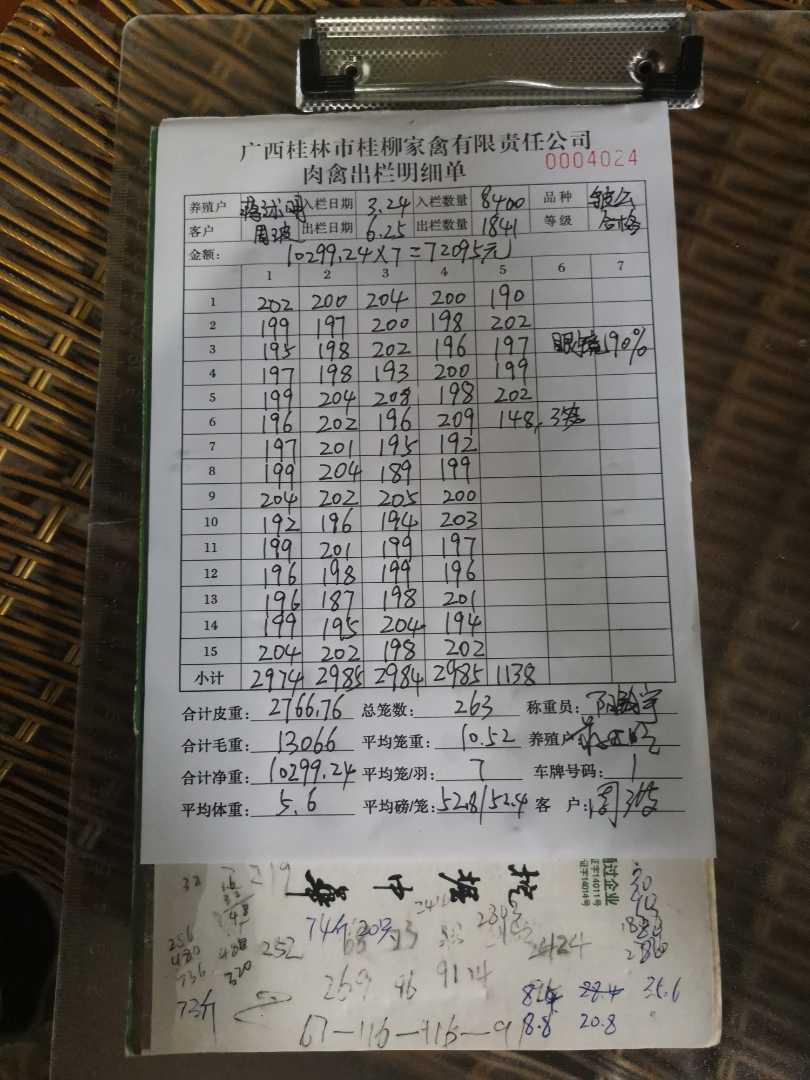 广西桂林市桂柳家禽有限责任公司
肉禽出栏明细单 0004024
养殖户 入栏日期 3.24 入栏数量 8400 品种
客户 周波 出栏日期 6.25 出栏数量 1841 等级 合格
金额: 10299.24×7=72095元
1 2 3 4 5 6 7
1 202 200 204 200 190
2 199 197 200 198 202
3 195 198 202 196 197 眼镜190%
4 197 198 193 200 199
5 199 204 208 198 202
6 196 202 196 209 148,
7 197 201 195 192
8 199 204 189 199
9 204 202 205 200
10 192 196 194 203
11 199 201 199 197
12 196 198 199 196
13 196 187 198 201
14 199 195 204 194
15 204 202 198 202
小计 2974 2985 2984 2985 1138
合计皮重: 2766.76 总笼数: 263 称重员:
合计毛重: 13066 平均笼重: 10.52 养殖户
合计净重: 10299.24 平均笼/羽: 7 车牌号码: 1
平均体重: 5.6 平均磅/笼: 52.8/52.4 客户:
32 219
74斤20只
256 488 252 2424
480
736 320 269 96 9124
73斤 28.4 35.6
67-116-116-91 8.8 20.8